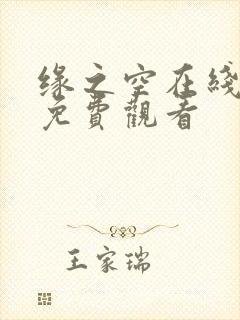 缘之空在綫
免費觀看
王家瑞